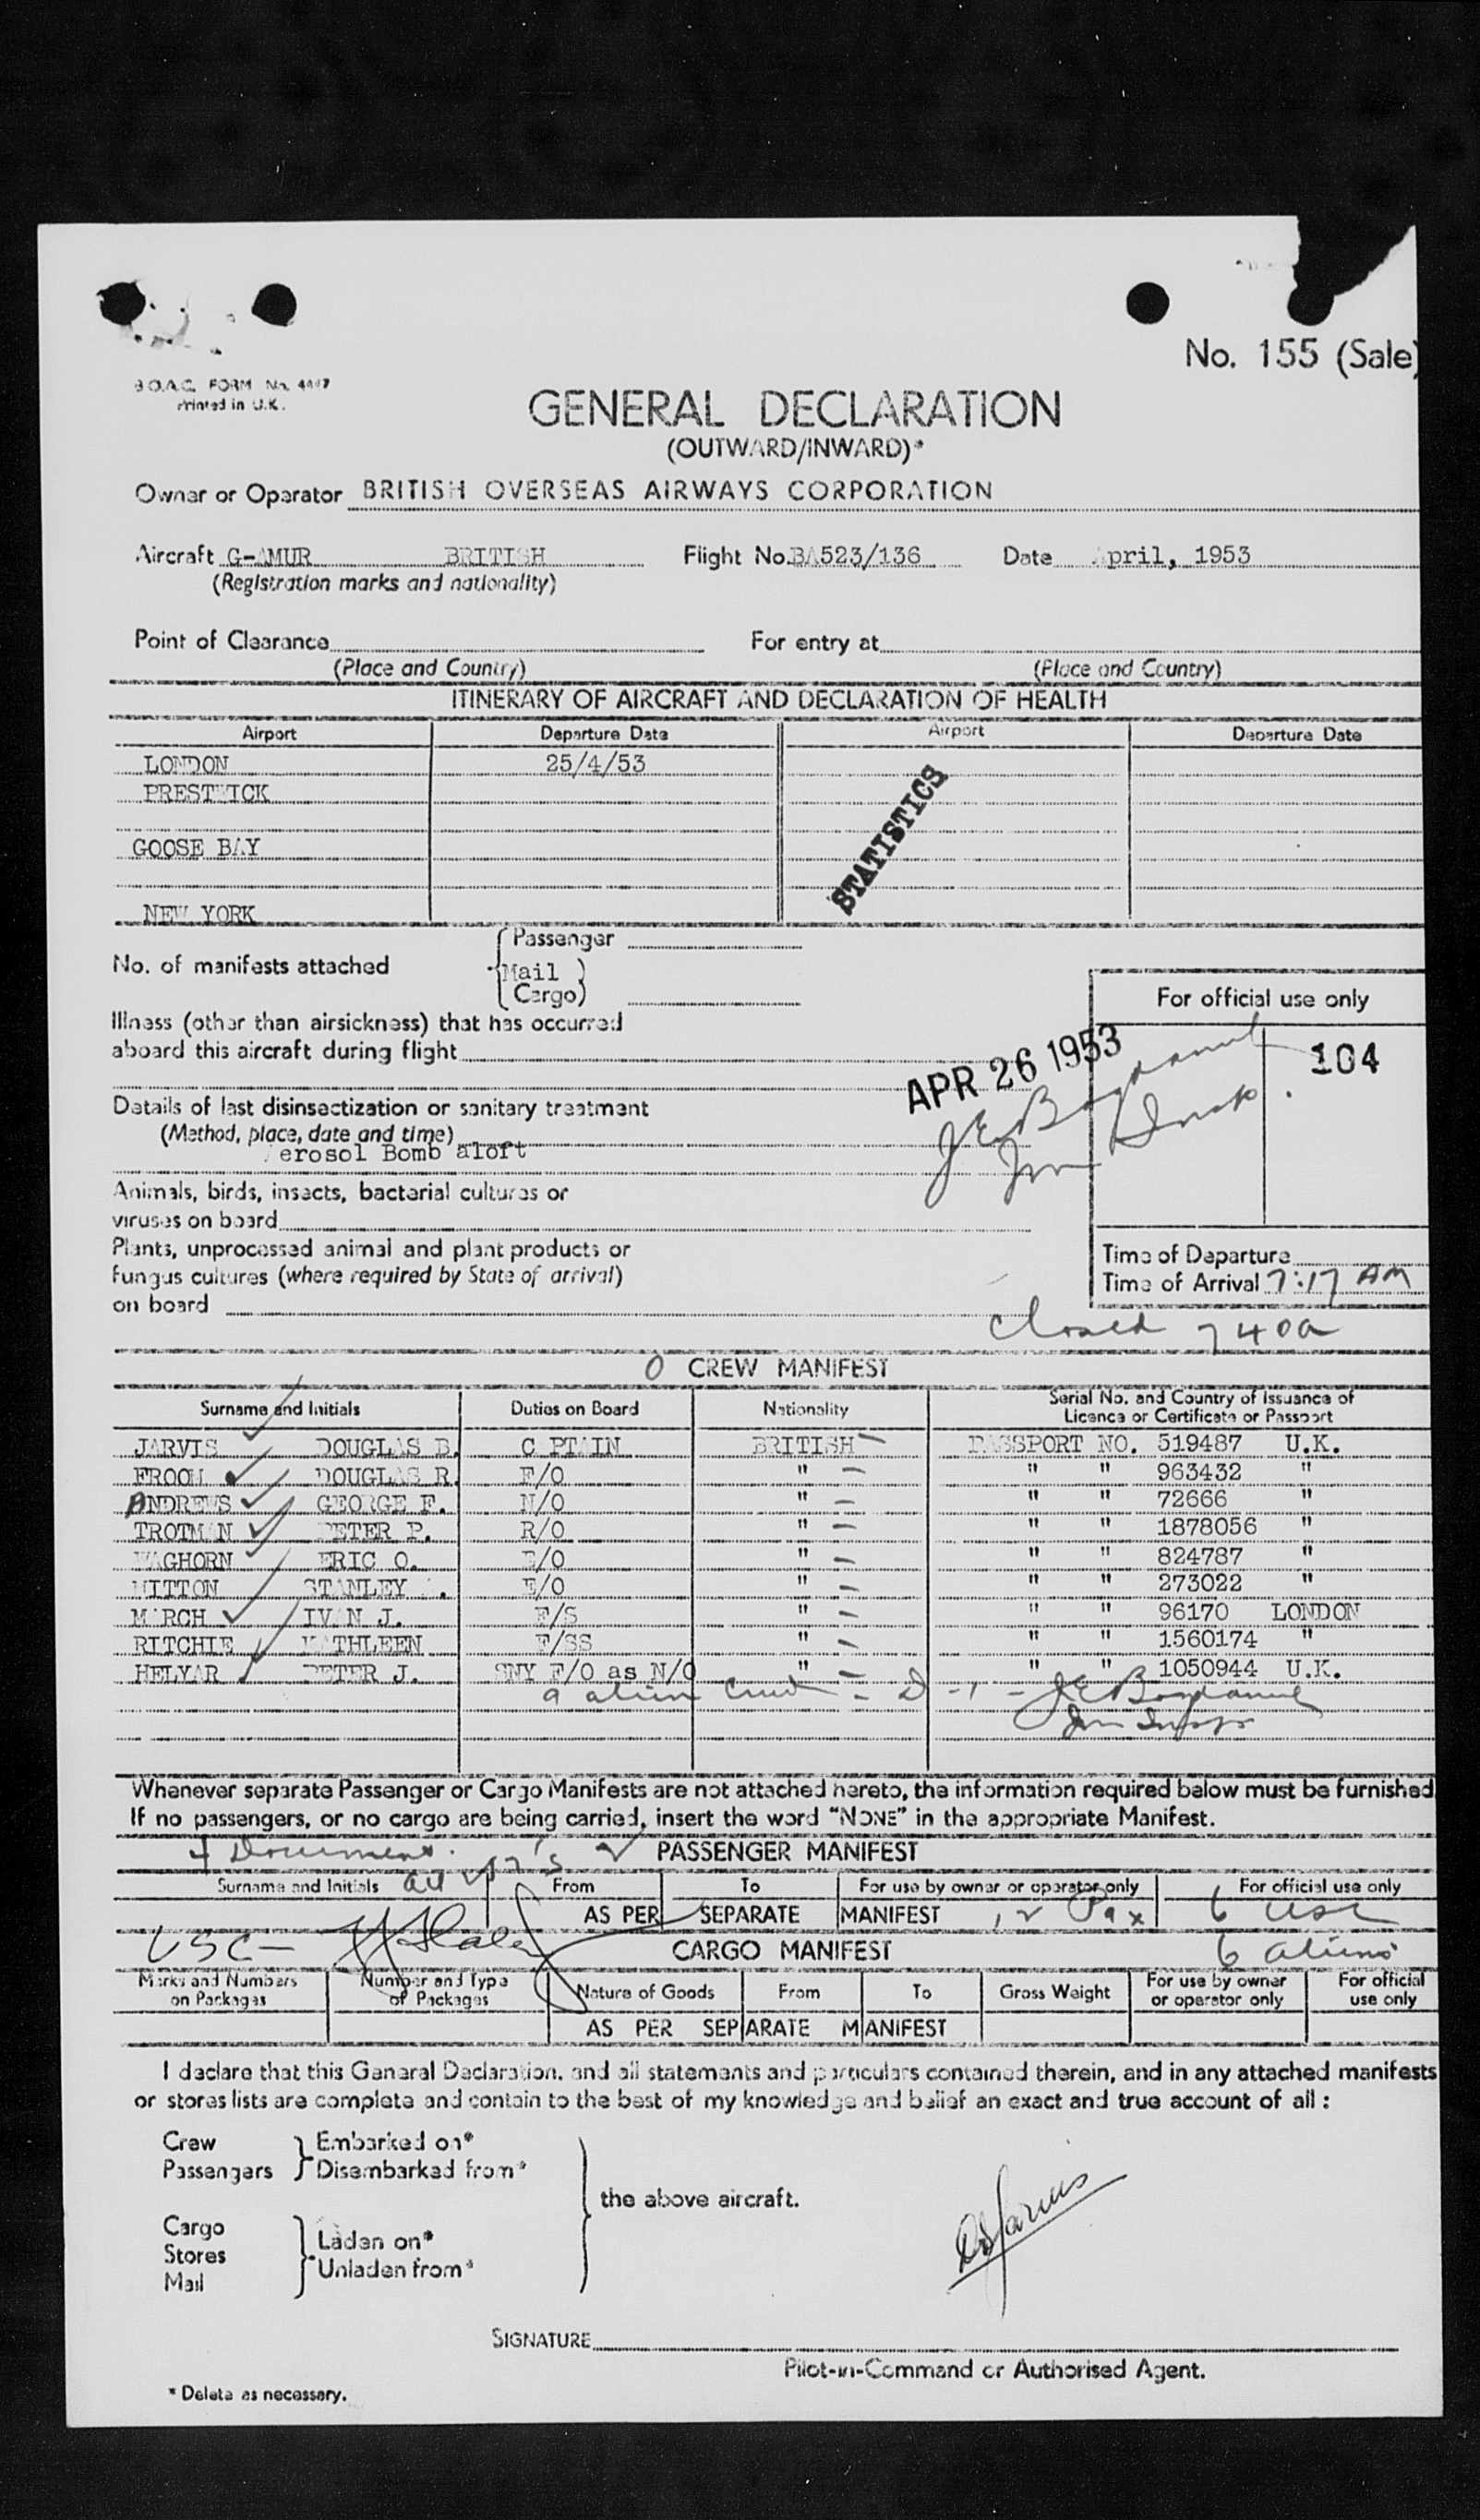 No. 155 (Sale)
B.O.A.C. FORM No. 4447
Printed in U.K.
GENERAL DECLARATION
(OUTWARD/INWARD)*
Owner or Operator BRITISH OVERSEAS AIRWAYS CORPORATION
Aircraft G-AMUR BRITISH Flight No. BA523/136 Date April, 1953
(Registration marks and nationality)
Point of Clearance For entry at
(Place and Country) (Place and Country)
ITINERARY OF AIRCRAFT AND DECLARATION OF HEALTH
Airport Departure Date Airport Departure Date
LONDON 25/4/53
PRESTWICK
GOOSE BAY
NEW YORK
STATISTICS
No. of manifests attached
Passenger
Mail
Cargo
For official use only
Illness (other than airsickness) that has occurred
aboard this aircraft during flight
APR 26 1953
104
Details of last disinsectization or sanitary treatment
(Method, place, date and time)
Aerosol Bomb aloft
Animals, birds, insects, bacterial cultures or
viruses on board
Plants, unprocessed animal and plant products or
fungus cultures (where required by State of arrival)
on board
Time of Departure
Time of Arrival 7:17 AM
Closed 740a
CREW MANIFEST
Surname and Initials Duties on Board Nationality Serial No. and Country of Issuance of
Licence or Certificate or Passport
JARVIS DOUGLAS B. CAPTAIN BRITISH PASSPORT NO. 519487 U.K.
FROOM DOUGLAS R. F/O " " " 963432 "
ANDREWS GEORGE F. N/O " " " 72666 "
TROTMAN PETER P. R/O " " " 1878056 "
WAGHORN ERIC O. E/O " " " 824787 "
MITTON STANLEY E/O " " " 273022 "
MARCH IVAN J. F/S " " " 96170 LONDON
RITCHIE KATHLEEN F/SS " " " 1560174 "
HELYAR PETER J. SNY F/O as N/O " " " 1050944 U.K.
9 alien Crew - D-1 -
Whenever separate Passenger or Cargo Manifests are not attached hereto, the information required below must be furnished
If no passengers, or no cargo are being carried, insert the word "NONE" in the appropriate Manifest.
PASSENGER MANIFEST
Surname and Initials From To For use by owner or operator only For official use only
AS PER SEPARATE MANIFEST 12 Pax 6 USC
CARGO MANIFEST 6 aliens
Marks and Numbers on Packages Number and Type of Packages Nature of Goods From To Gross Weight For use by owner or operator only For official use only
AS PER SEPARATE MANIFEST
I declare that this General Declaration, and all statements and particulars contained therein, and in any attached manifests
or stores lists are complete and contain to the best of my knowledge and belief an exact and true account of all :
Crew Embarked on*
Passengers Disembarked from*
the above aircraft.
Cargo
Stores Laden on*
Mail Unladen from*
DB Jarvis
SIGNATURE
Pilot-in-Command or Authorised Agent.
* Delete as necessary.